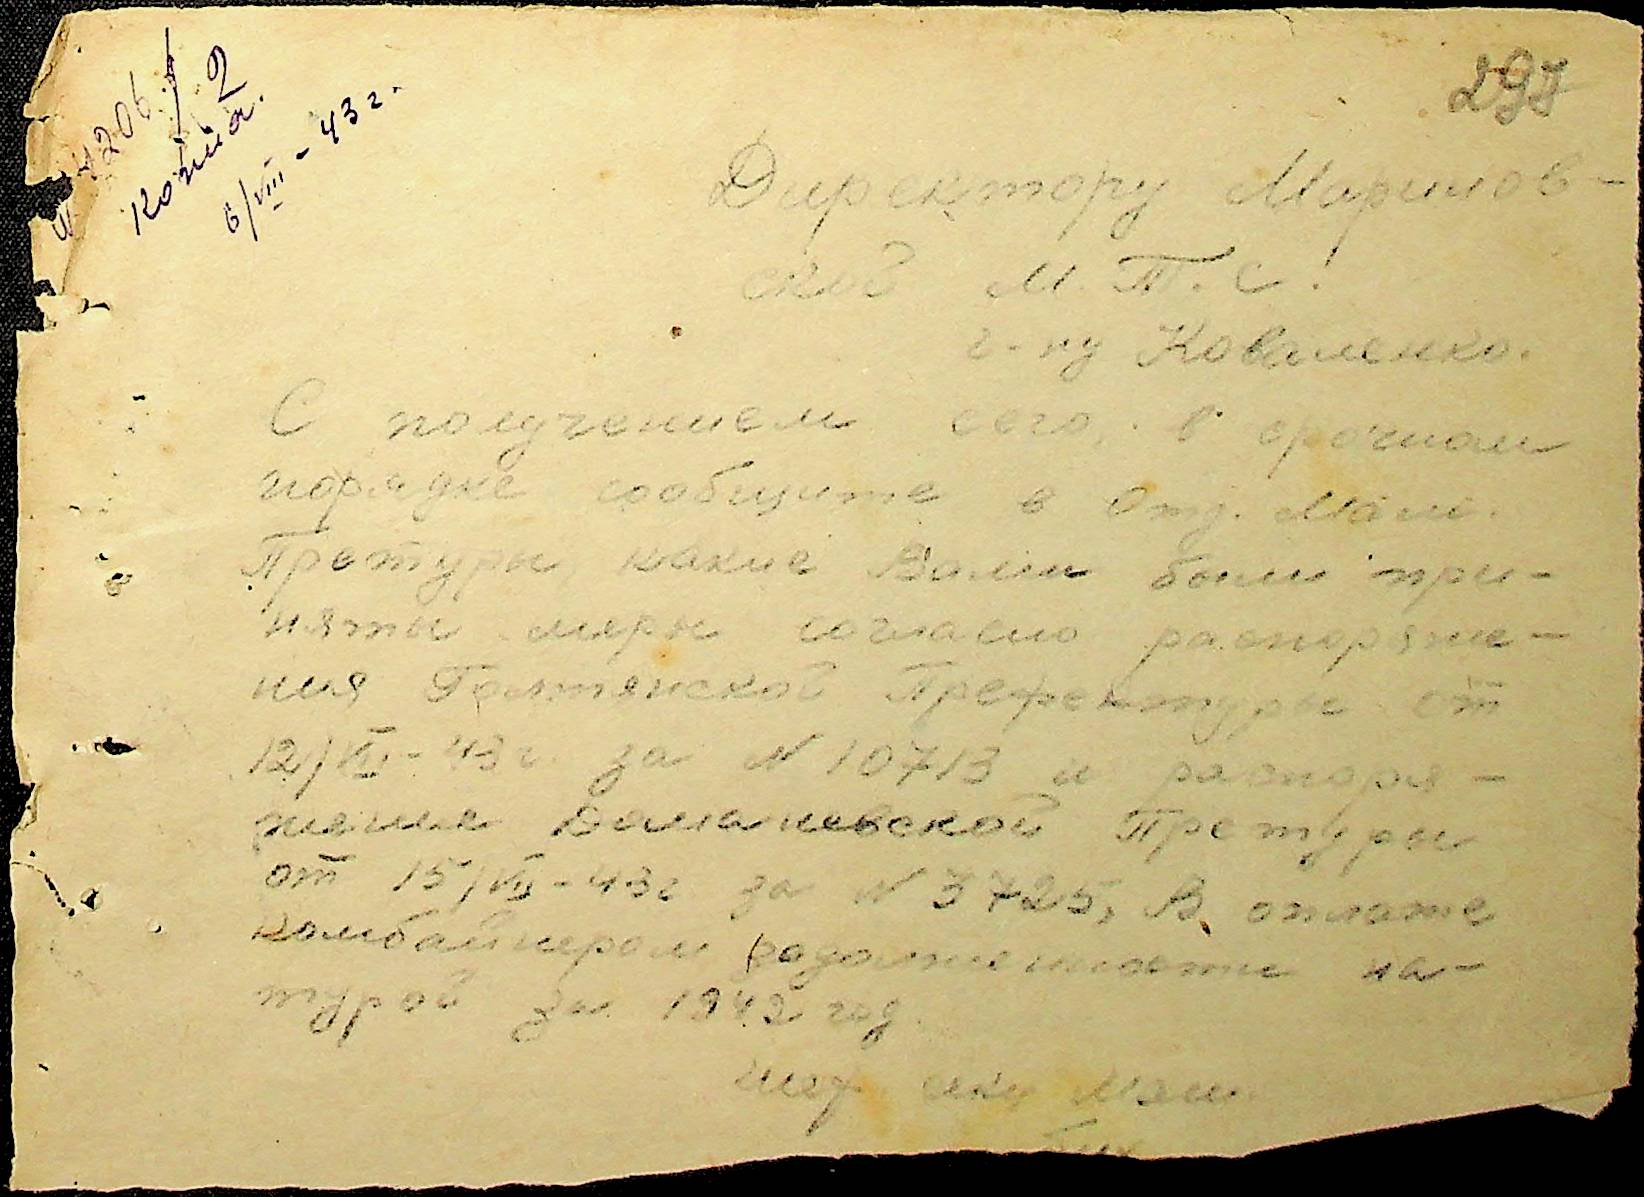 4206/2
Копия.
6/VIII - 43 г.
297
Директору Маринов-
ской М.Т.С.!
г-ну Коваленко.
С получением сего, в срочном
порядке сообщите в Отд. Маш.
Претуры какие Вами были при-
няты меры согласно распоряже-
ния Голтянской Префектуры от
12/VII - 43 г. за N 10713 и распоря-
жения Доманевской Претуры
от 15/VII - 43 г за N 3725, В оплате
комбайнером задолженности на-
турой за 1942 год.
шеф Маш.